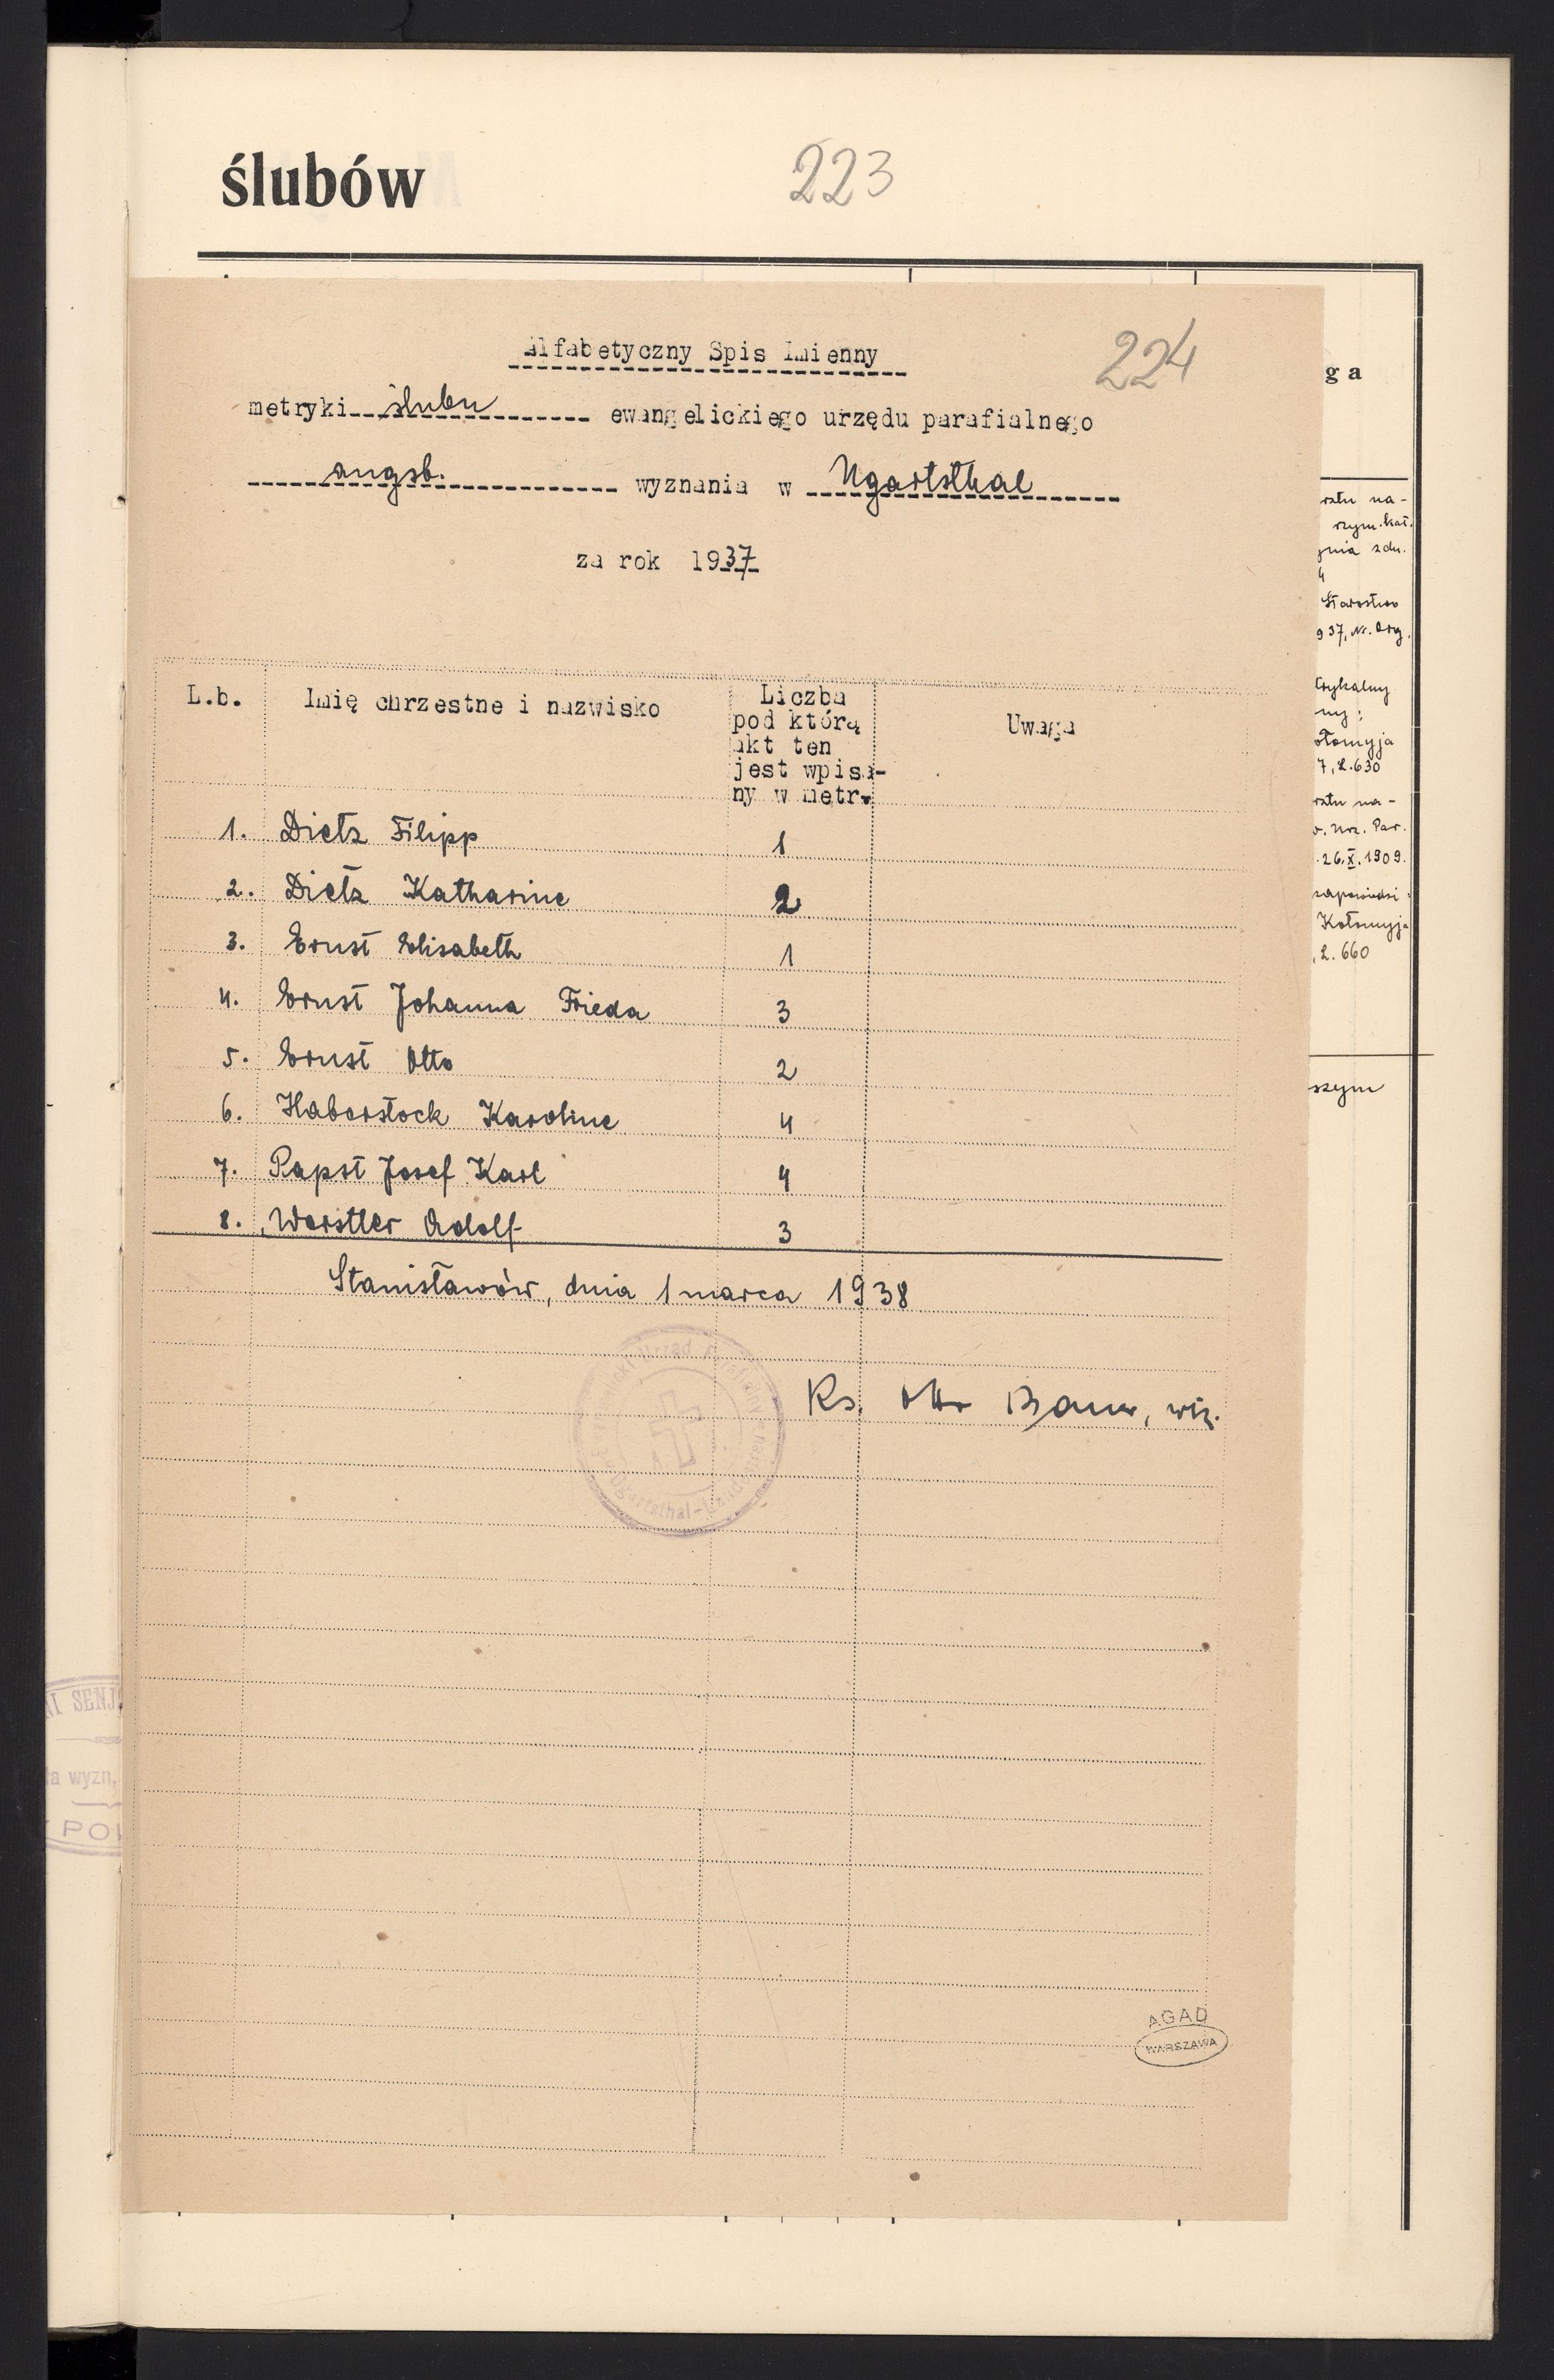 ślubów
223
Alfabetyczny Spis Imienny
224
metryki ślubu ewangelickiego urzędu parafialnego
augsb. wyznania w Ugartsthal
za rok 1937
L.b. Imię chrzestne i nazwisko Liczba pod którą akt ten jest wpisa- ny w metr. Uwaga
1. Dietz Filipp 1
2. Dietz Katharine 2
3. Ernst Elisabeth 1
4. Ernst Johanna Frieda 3
5. Ernst Otto 2
6. Haberstock Karoline 4
7. Papst Josef Karl 4
8. Worstler Adolf 3
Stanisławów, dnia 1 marca 1938
Ks. Otto Bauer, wik.
Urząd Parafialny
Ugartsthal-
AGAD
WARSZAWA
NI SENJ
a wyzn.
POL
ga
ratu na-
rzym.kat.
Starostwo
937, Nr. Org.
ołomyja
7, L.630
ratu na-
26.X.1909.
zapowiedzi
Kołomyja
, L. 660
szym